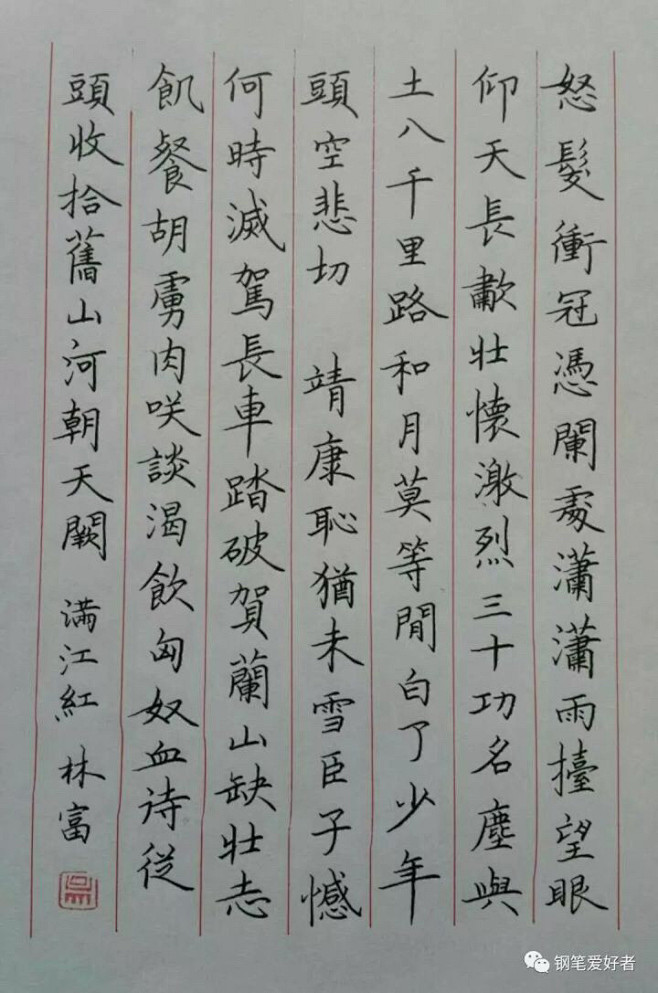 怒髮衝冠憑闌處瀟瀟雨擡望眼
仰天長歗壯懷激烈三十功名塵與
土八千里路和月莫等閒白了少年
頭空悲切 靖康恥猶未雪臣子憾
何時滅駕長車踏破賀蘭山缺壯志
飢餐胡虜肉咲談渴飲匈奴血待從
頭收拾舊山河朝天闕 滿江紅 林富
钢笔爱好者